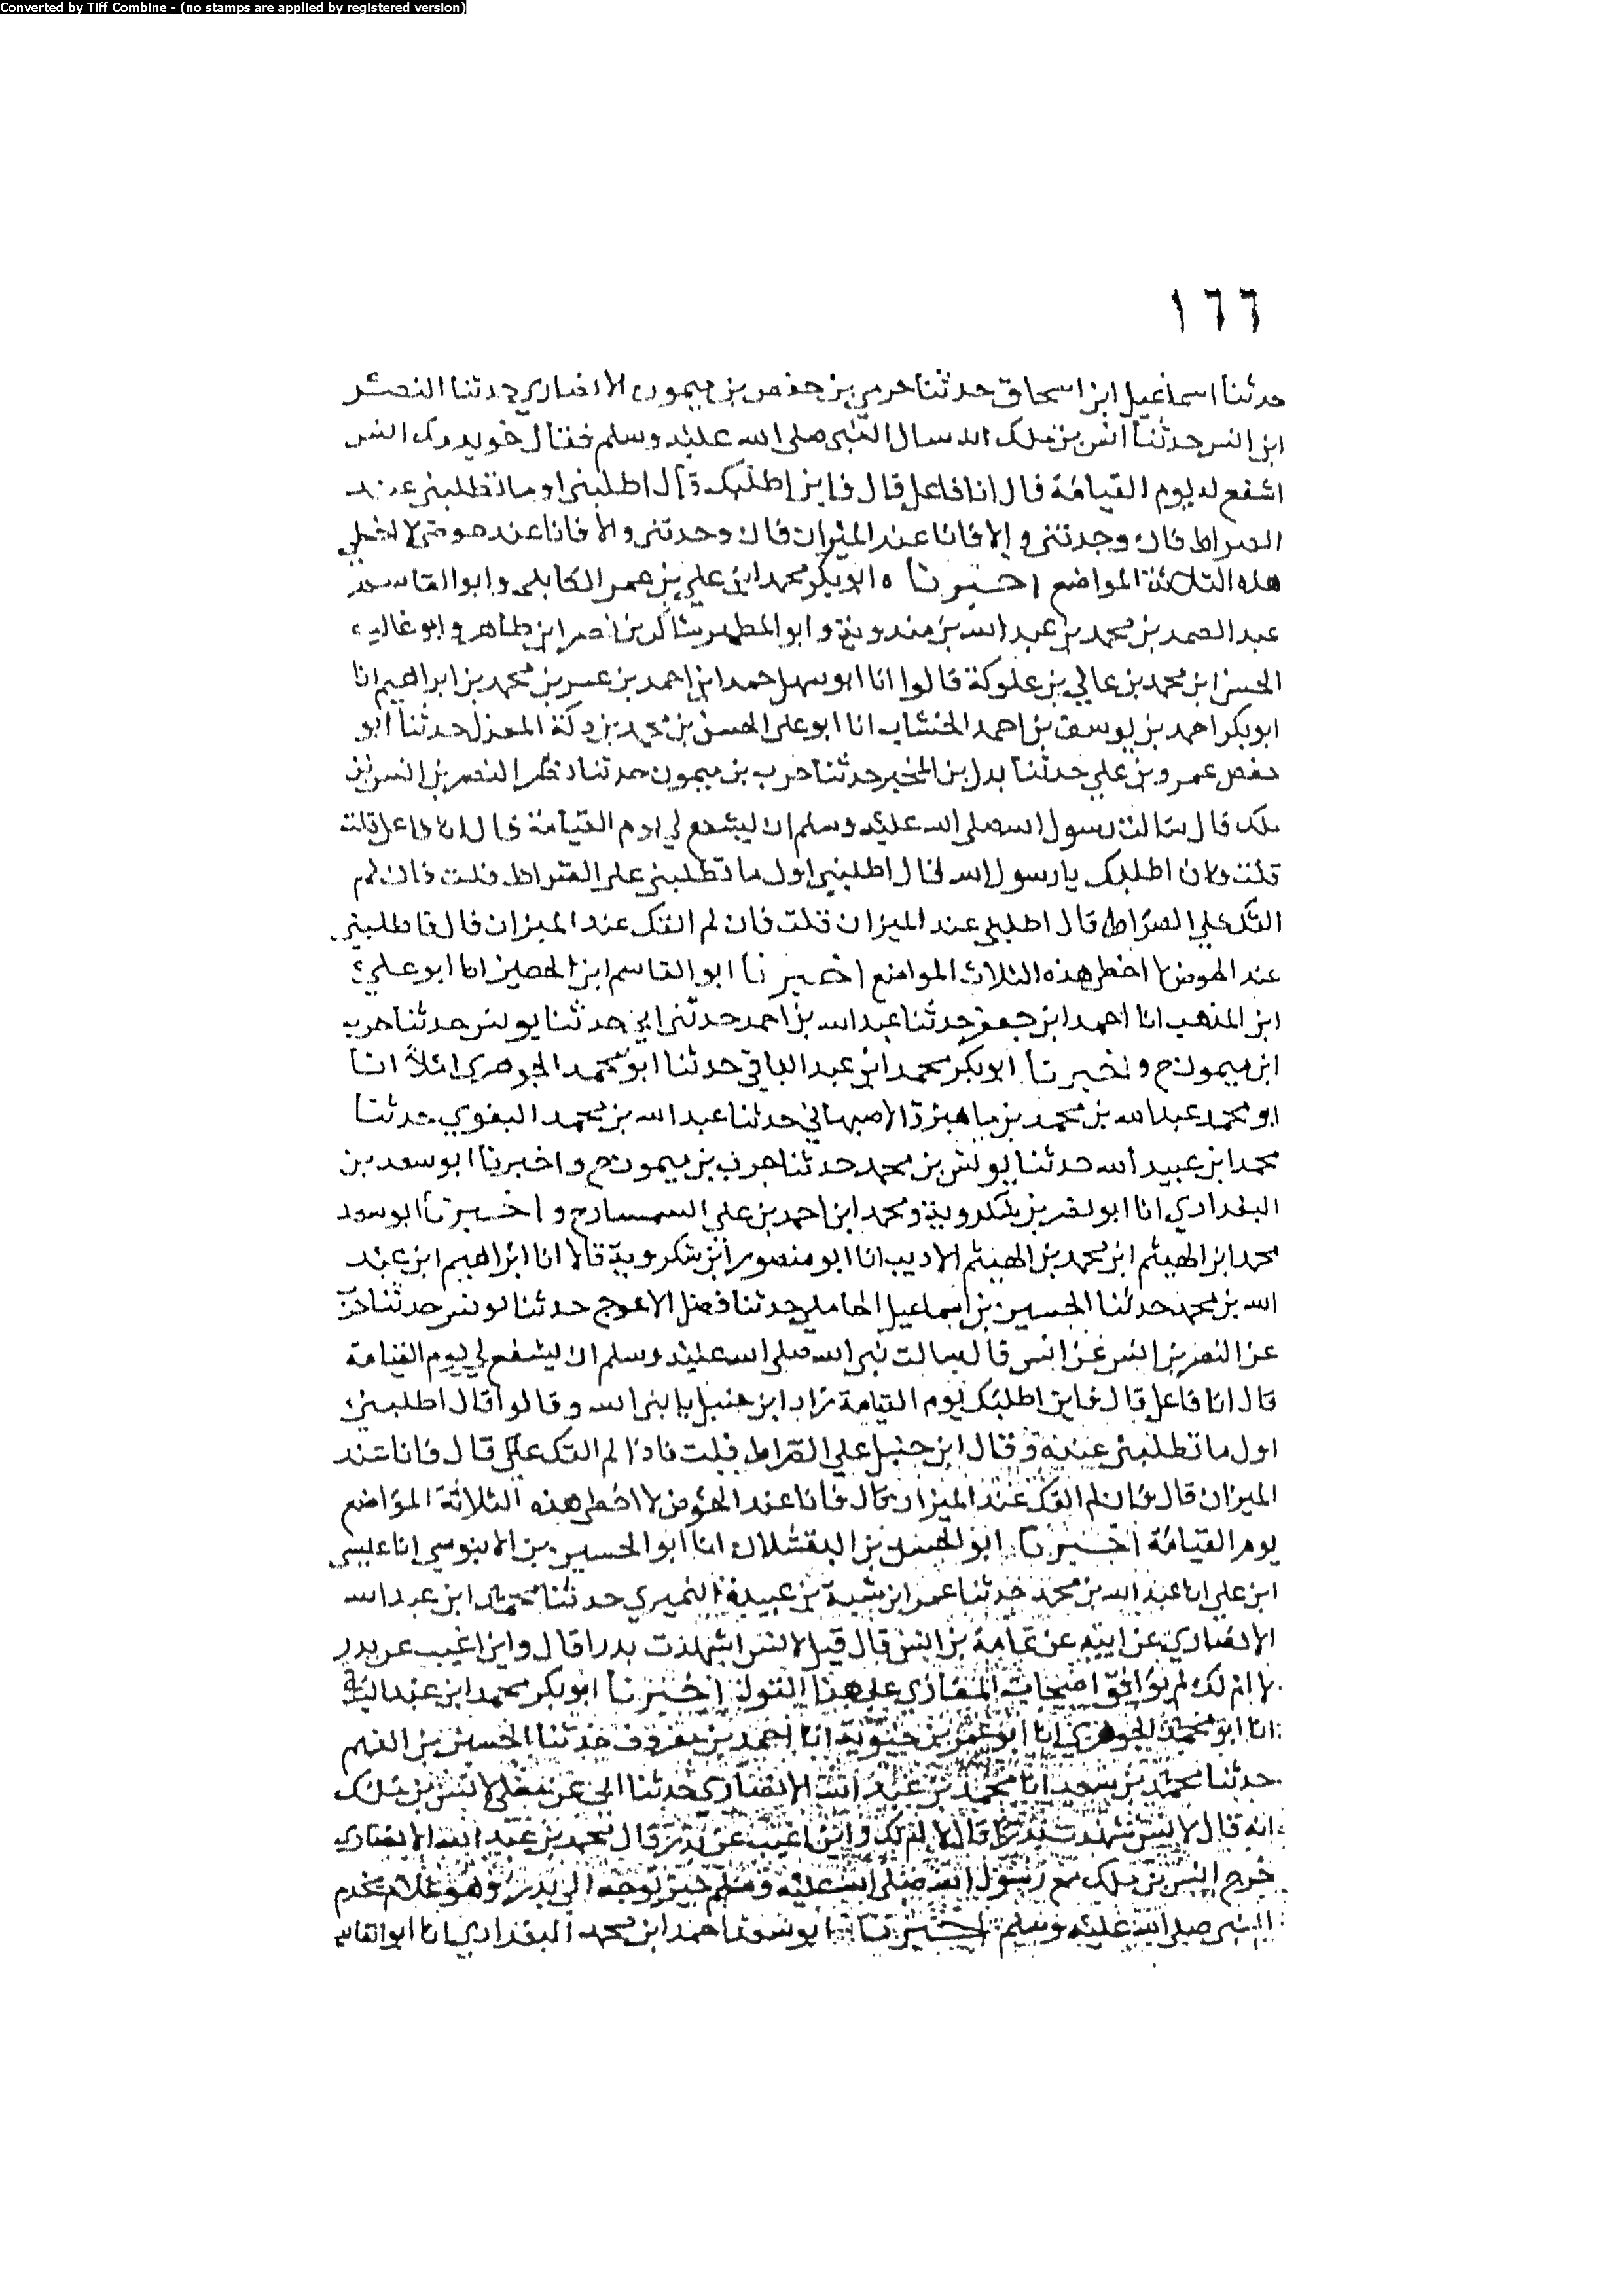 Converted by Tiff Combine - (no stamps are applied by registered version)
١٦٦
حدثنا اسماعيل ابن اسحاق حدثنا حرمي بن حفص بن ميمون الانصاري حدثنا النضر
ابن انس حدثنا انس بن ملك انه سال النبى صلى الله عليه وسلم فقال خويدمك انس
اشفع له يوم القيامة قال انا فاعل قال فاين اطلبك قال اطلبنى اول ما تطلبنى عند
الصراط فان وجدتنى والا فانا عند الميزان فان وجدتنى والا فانا عند حوضى لا اخطي
هذه الثلاثة المواضع اخبرنا ابو بكر محمد ابن علي بن عمر الكابلى وابو القاسم
عبد الصمد بن محمد بن عبد الله بن مندوية وابو المطهر شاكر بن نصر ابن طاهر وابو غالب
الحسن ابن محمد بن عالي بن علوكة قالوا انا ابو سهل حمد ابن احمد بن عمر بن محمد بن ابراهيم انا
ابو بكر احمد بن يوسف بن احمد الخشاب انا ابو على الحسن بن محمد بن دكة المعدل حدثنا ابو
حفص عمرو بن علي حدثنا بدل بن المحبر حدثنا حرب بن ميمون حدثنا النضر بن انس بن
ملك قال سالت رسول الله صلى الله عليه وسلم ان يشفع لي يوم القيامة قال انا فاعل قلت
قلت فاين اطلبك يا رسول الله قال اطلبني اول ما تطلبنى على الصراط قلت فان لم
القك على الصراط قال اطلبنى عند الميزان قلت فان لم القك عند الميزان قال فاطلبنى
عند الحوض لا اخطى هذه الثلاث المواضع اخبرنا ابو القاسم ابن الحصين انا ابو علي
ابن المذهب انا احمد ابن جعفر حدثنا عبد الله بن احمد حدثنى ابي حدثنا يونس حدثنا حرب
ابن ميمون ح واخبرنا ابو بكر محمد ابن عبد الباقي حدثنا ابو محمد الجوهري املاً انا
ابو محمد عبد الله بن محمد بن ماهبزذ الاصبهاني حدثنا عبد الله بن محمد البغوي حدثنا
محمد ابن عبيد الله حدثنا يونس بن محمد حدثنا حرب بن ميمون ح واخبرنا ابو سعد بن
البغدادي انا ابو بن شكروية ومحمد ابن احمد بن علي السمسار ح واخبرنا ابو سعد
محمد ابن الهيثم ابن محمد بن الهيثم الاديب انا ابو منصور ابن شكروية قالا انا ابراهيم ابن عبد
الله بن محمد حدثنا الحسين بن اسماعيل المحاملي حدثنا فضل الاعرج حدثنا يونس حدثنا حرب
عن النضر بن انس عن انس قال سالت نبى الله صلى الله عليه وسلم ان يشفع لي يوم القيامة
قال انا فاعل قال فاين اطلبك يوم القيامة زاد ابن حنبل يا بنى الله وقالوا قال اطلبنى
اول ما تطلبنى وقال ابن حنبل على الصراط قلت فاذا لم القك على قال فانا عند
الميزان قال فان لم القك عند الميزان قال فانا عند الحوض لا اخطى هذه الثلاثة المواضع
يوم القيامة اخبرنا ابو الحسن بن البقشلان انا ابو الحسين بن الابنوسي انا عيسى
ابن علي انا عبد الله بن محمد حدثنا عمر ابن شبة بن عبيدة النميري حدثنا محمد ابن عبد الله
الانصاري عن ابيه عن ثمامة بن انس قال قيل لانس اشهدت بدرا قال واين اغيب عن بدر
لا ام لك لم يوافق اصحاب المغازي على هذا القول اخبرنا ابو بكر محمد ابن عبد الباقي
انا ابو محمد الجوهري انا ابو عمر بن حيوية انا احمد بن معروف حدثنا الحسين بن الفهم
حدثنا محمد بن سعد انا محمد بن عبد الله الانصاري حدثنا ابي عن مولى لانس بن ملك
انه قال لانس شهدت بدرا قال لا ام لك واين اغيب عن بدر قال محمد بن عبد الله الانصاري
خرج انس بن ملك مع رسول الله صلى الله عليه وسلم حين توجه الى بدر وهو غلام يخدم
النبى صلى الله عليه وسلم اخبرنا ابو سعد احمد ابن محمد البغدادي انا ابو القاسم